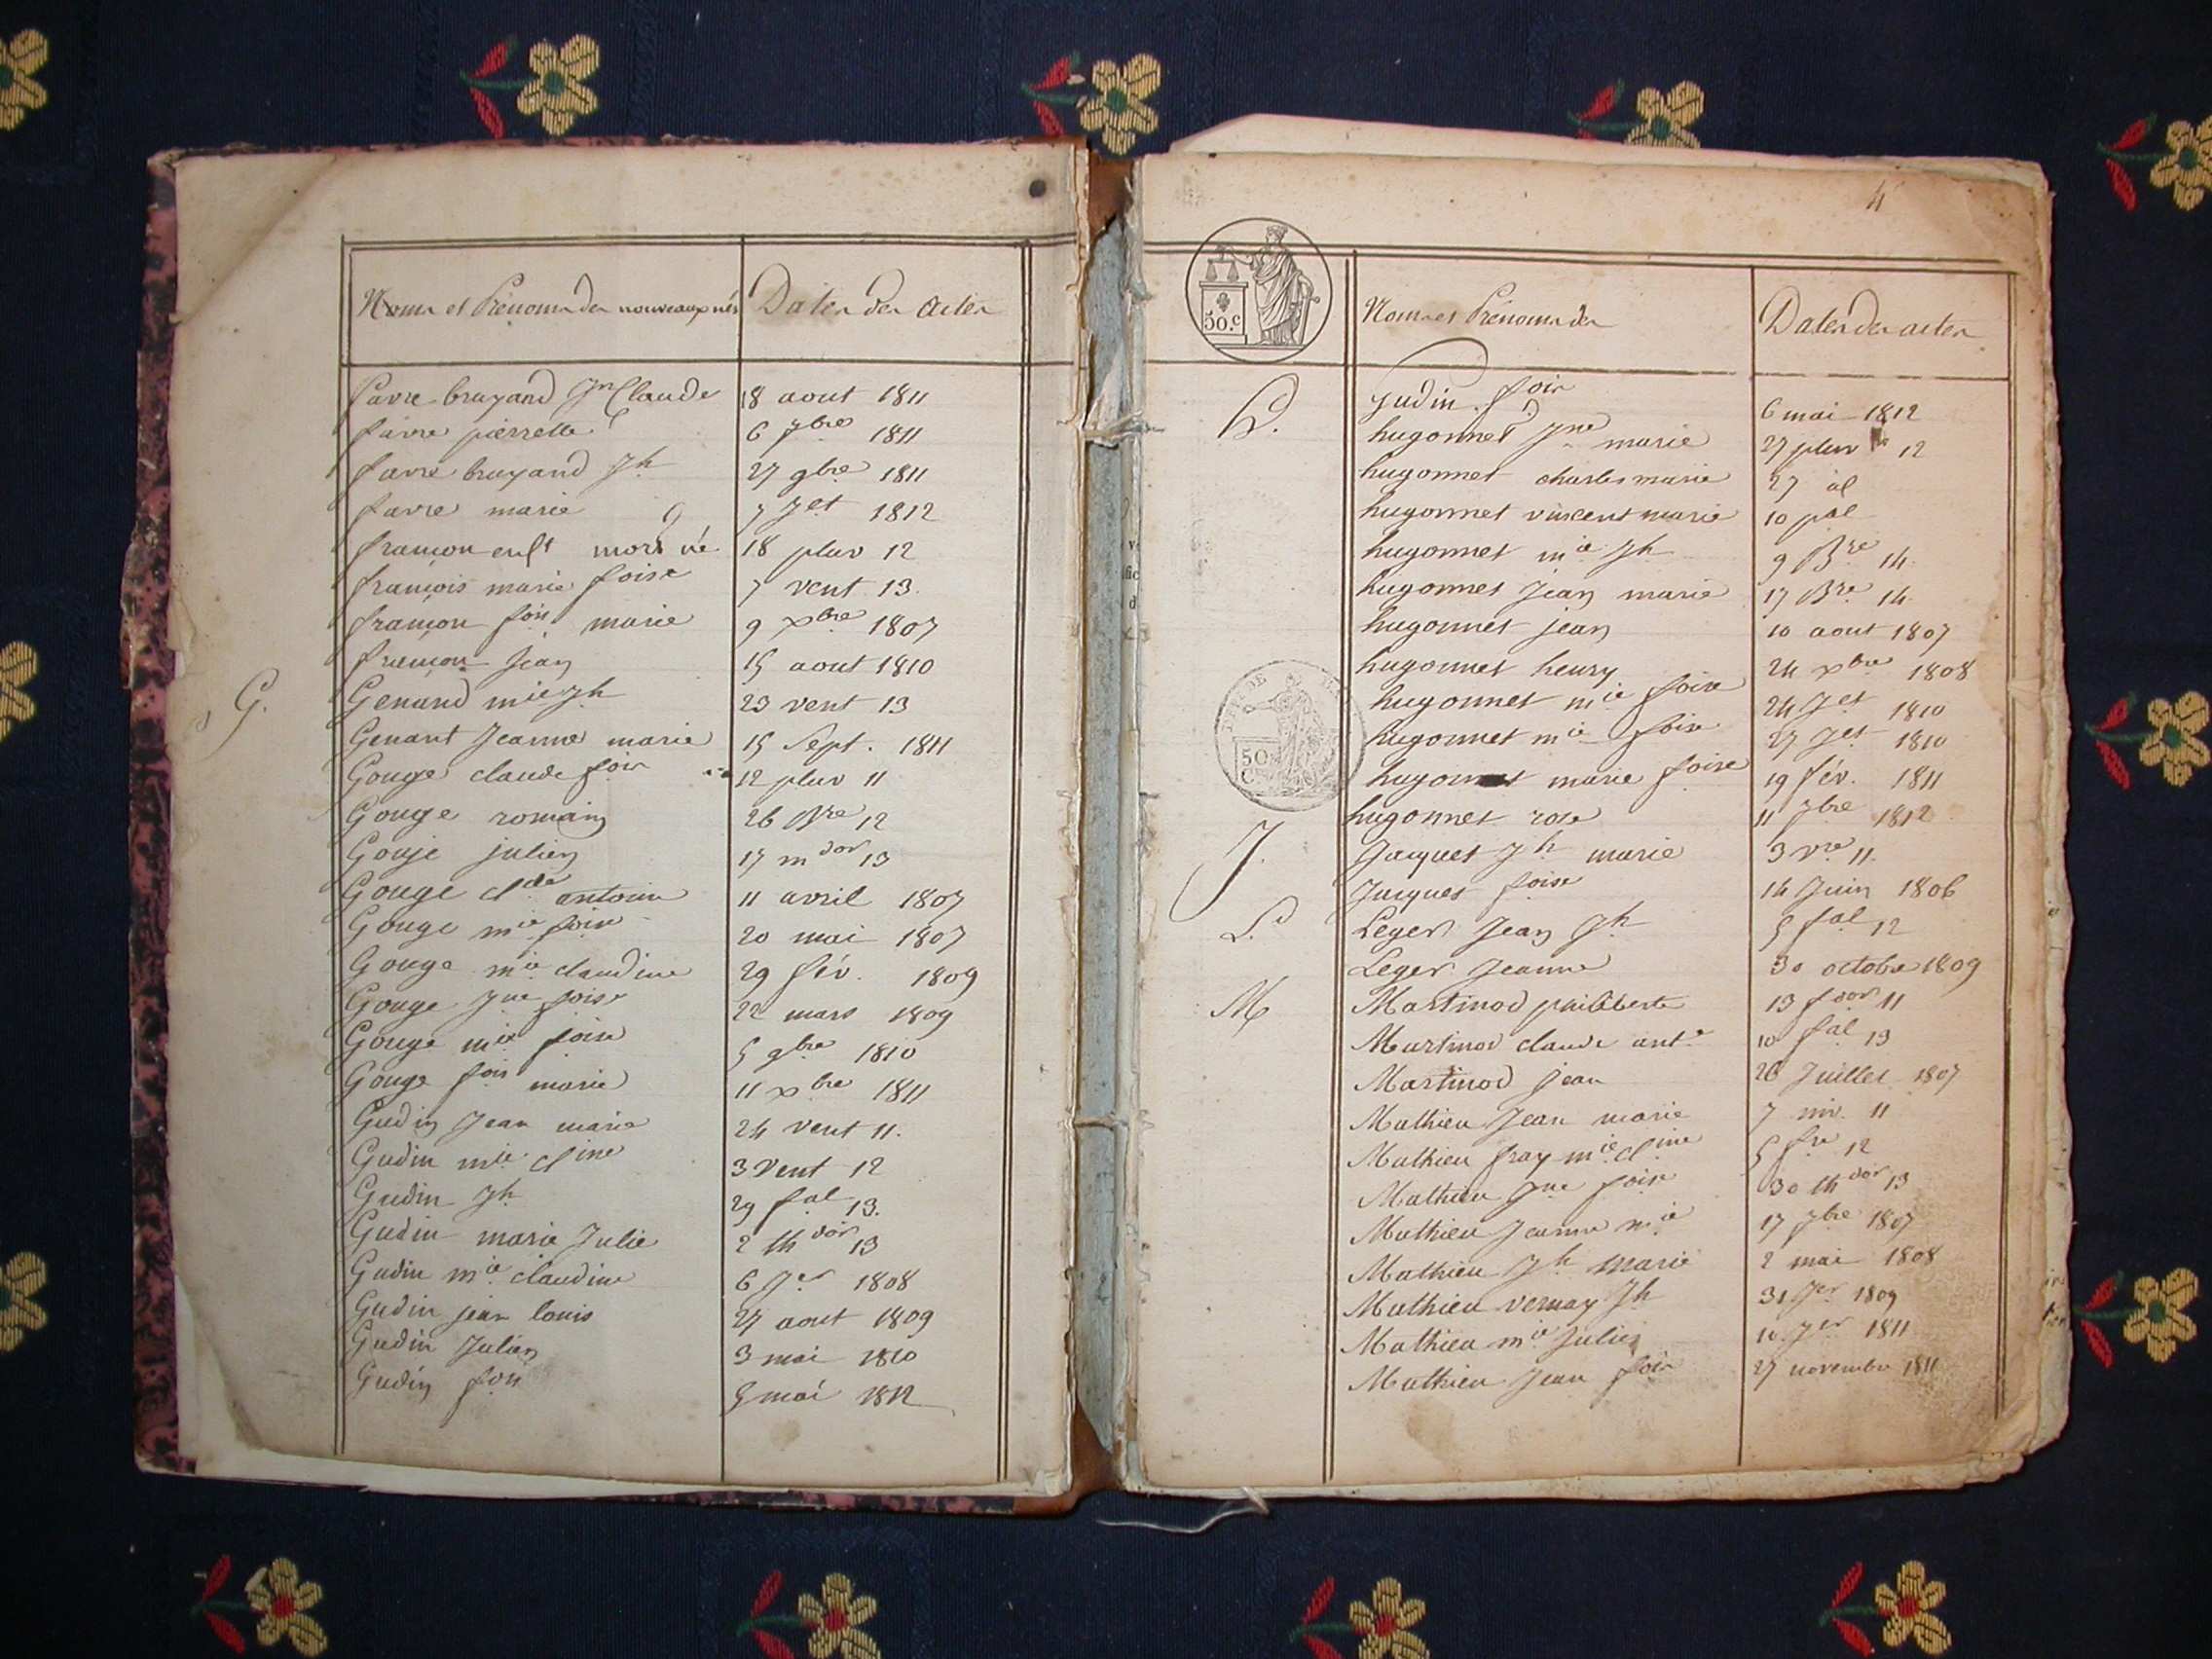 Noms et Prénoms des nouveaux nés Dates des actes
favre bruyand Jn Claude 18 aout 1811
favre pierrette 6 7bre 1811
favre bruyand Jh 27 9bre 1811
favre marie 7 Jet 1812
françon enft mort né 18 pluv 12
françois marie foise 7 vent 13.
françon fois marie 9 xbre 1807
françon Jean 15 aout 1810
G. Genand mie Jh 23 vent 13
Genant Jeanne marie 15 Sept. 1811
Gouge claude fois 12 pluv 11
Gouge romain 26 Bre 12
Gouje julien 17 mdor 13
Gouge clde antoine 11 avril 1807
Gouge mie foise 20 mai 1807
Gouge mie claudine 29 fév. 1809
Gouge Jne foise 22 mars 1809
Gouge mie foise 5 9bre 1810
Gouge fois marie 11 xbre 1811
Gudin Jean marie 24 vent 11.
Gudin mie cline 3 vent 12
Gudin Jh 29 fal 13.
Gudin marie Julie 2 thdor 13
Gudin mie claudine 6 Jer 1808
Gudin jean louis 24 aout 1809
Gudin Julien 3 mai 1810
Gudin fois 5 mai 1812
4
50.c
Noms et Prénoms des Dates des actes
gudin fois 6 mai 1812
H. hugonnet Jne marie 27 pluvse 12
hugonnet charles marie 27 al
hugonnet vincent marie 10 pal
hugonnet mie Jh 9 Bre 14
hugonnet Jean marie 17 Bre 14
hugonnet jean 10 aout 1807
hugonnet henry 24 xbre 1808
hugonnet mie foise 24 Jet 1810
hugonnet mie foise 27 Jet 1810
50 C
hugonnet marie foise 19 fév. 1811
hugonnet rose 11 7bre 1812
J. Jacques Jh marie 3 vre 11.
Jacques foise 14 Juin 1806
L. Leger Jean Jh 5 fal 12
Leger Jeanne 30 octobre 1809
M Martinod philiberte 13 fdor 11
Martinod claude ante 10 fal 13
Martinod jean 26 Juillet 1807
Mathieu Jean marie 7 niv. 11
Mathieu fray mie cline 5 fre 12
Mathieu Jne foise 30 thdor 13
Mathieu Jeanne mie 17 7bre 1807
Mathieu Jh marie 2 mai 1808
Mathieu vernay Jh 31 Jer 1809
Mathieu mie Julien 10 Jer 1811
Mathieu Jean fois 27 novembre 1811